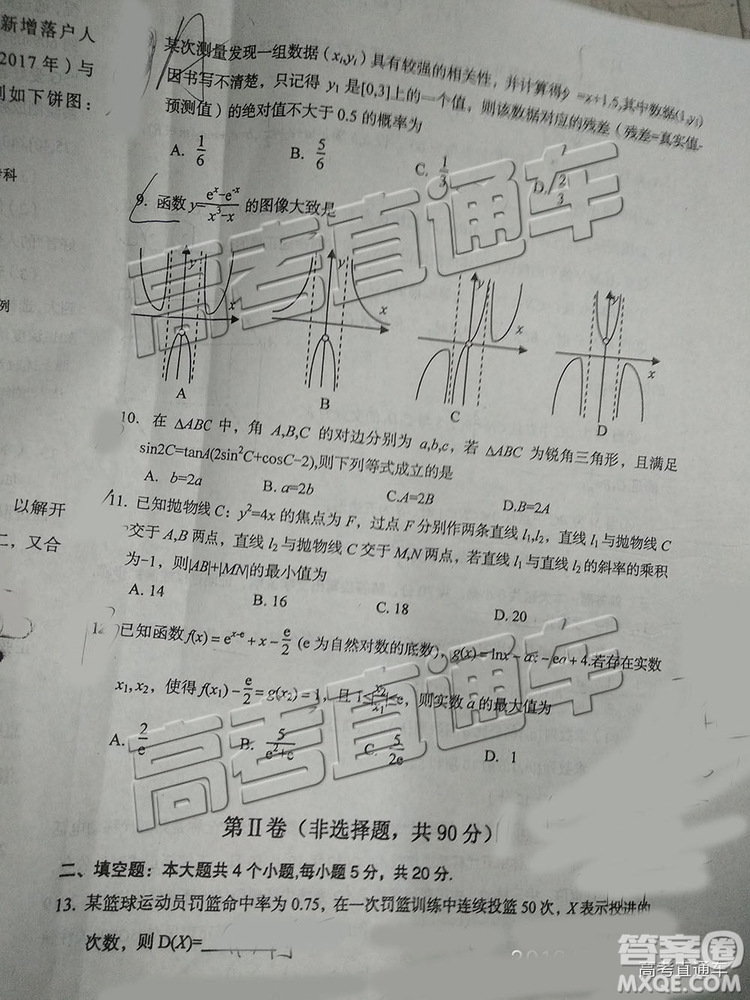 新增落户人
2017年）与
如下饼图：
科
例
以解开
二，又合
某次测量发现一组数据（x₁,y₁）具有较强的相关性，并计算得ŷ=x+1.5,其中数据(1,y₁)
因书写不清楚，只记得 y₁ 是[0,3]上的一个值，则该数据对应的残差（残差=真实值-
预测值）的绝对值不大于 0.5 的概率为
A. 1/6 B. 5/6 C. 1/3 D. 2/3
9. 函数 y=(eˣ-e⁻ˣ)/(x³-x) 的图像大致是
y x y x y x y x
A B C D
10. 在 △ABC 中，角 A,B,C 的对边分别为 a,b,c，若 △ABC 为锐角三角形，且满足
sin2C=tanA(2sin²C+cosC-2),则下列等式成立的是
A. b=2a B. a=2b C.A=2B D.B=2A
11. 已知抛物线 C：y²=4x 的焦点为 F，过点 F 分别作两条直线 l₁,l₂，直线 l₁ 与抛物线 C
交于 A,B 两点，直线 l₂ 与抛物线 C 交于 M,N 两点，若直线 l₁ 与直线 l₂ 的斜率的乘积
为-1，则|AB|+|MN|的最小值为
A. 14 B. 16 C. 18 D. 20
12 已知函数 f(x)=eˣ⁻ᵉ+x-e/2 (e 为自然对数的底数)，g(x)=lnx-ax-ea+4.若存在实数
x₁, x₂，使得 f(x₁)-e/2=g(x₂)=1，且 1≤|x₂/x₁|≤e，则实数 a 的最大值为
A. 2/e B. 5/(e²+e) C. 5/2e D. 1
第Ⅱ卷（非选择题，共90分）
二、填空题：本大题共4个小题,每小题5分，共20分.
13. 某篮球运动员罚篮命中率为 0.75，在一次罚篮训练中连续投篮 50 次，X 表示投进的
次数，则 D(X)=
高考直通车
高考直通车
答案圈
高考直通车
MXQE.COM